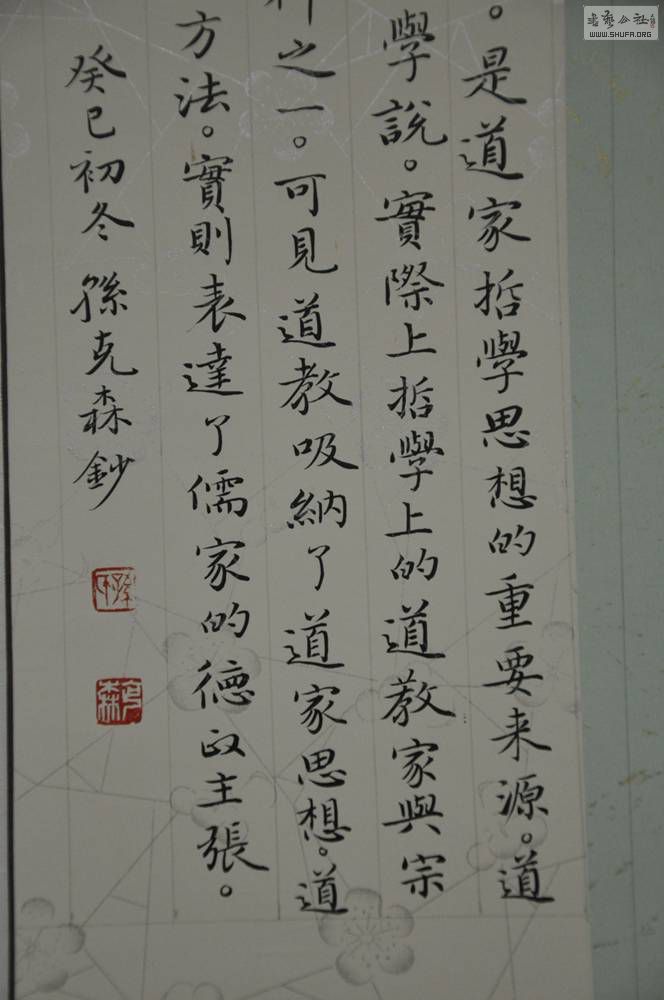 。是道家哲學思想的重要来源。道
學說。實際上哲學上的道教家與宗
之一。可見道教吸納了道家思想。道
方法。實則表達了儒家的德政主張。
癸巳初冬孫克森鈔
書藝公社
WWW.SHUFA.ORG